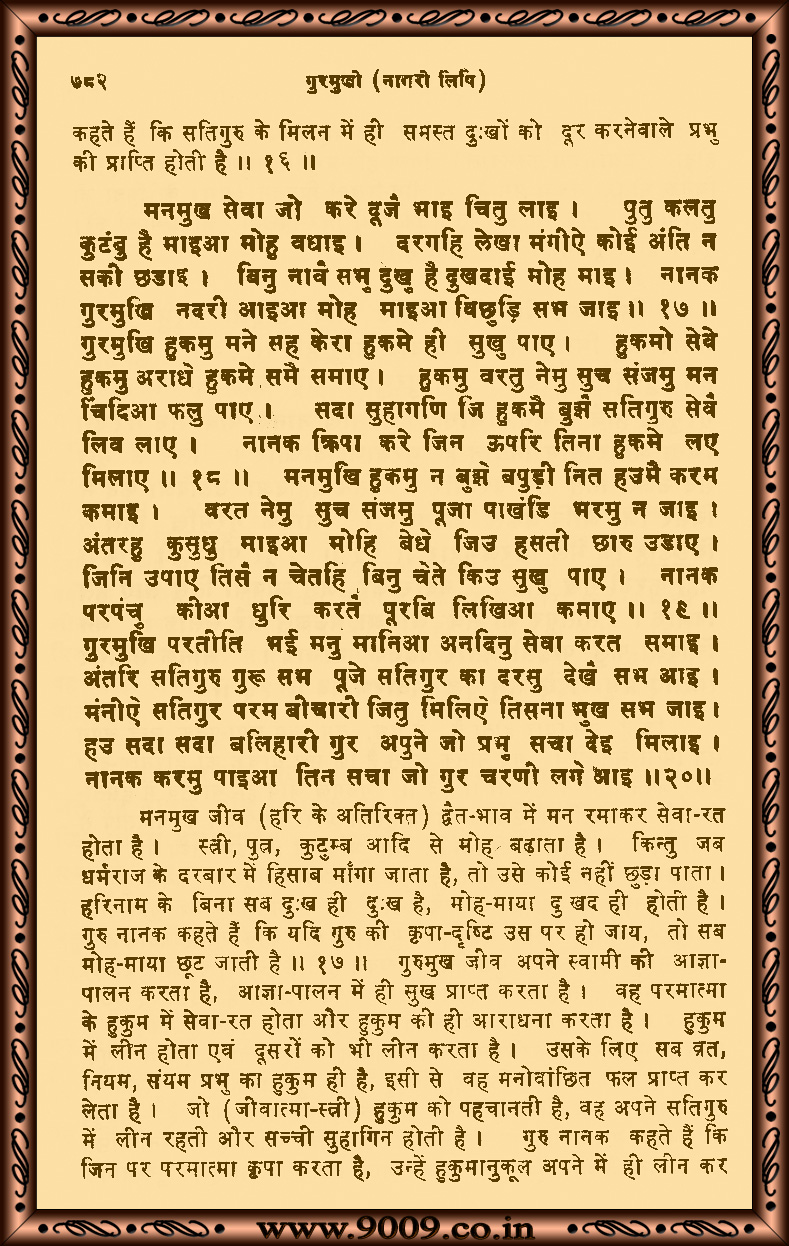 ७८२ गुरमुखी (नागरी लिपि)
कहते हैं कि सतिगुरु के मिलन में ही समस्त दुःखों को दूर करनेवाले प्रभु
की प्राप्ति होती है ॥ १६ ॥
मनमुख सेवा जो करे दूजै भाइ चितु लाइ । पुतु कलतु
कुटंबु है माइआ मोहु वधाइ । दरगहि लेखा मंगीऐ कोई अंति न
सकी छडाइ । बिनु नावै सभु दुखु है दुखदाई मोह माइ । नानक
गुरमुखि नदरी आइआ मोह माइआ विछुड़ि सभ जाइ ॥ १७ ॥
गुरमुखि हुकमु मने सह केरा हुकमे ही सुखु पाए । हुकमो सेवे
हुकमु अराधे हुकमे समै समाए । हुकमु वरतु नेमु सुच संजमु मन
चिंदिआ फलु पाए । सदा सुहागणि जि हुकमै बुझै सतिगुरु सेवै
लिव लाए । नानक क्रिपा करे जिन ऊपरि तिना हुकमे लए
मिलाए ॥ १८ ॥ मनमुखि हुकमु न बुझे बपुड़ी नित हउमै करम
कमाइ । वरत नेमु सुच संजमु पूजा पाखंडि भरमु न जाइ ।
अंतरहु कुसुधु माइआ मोहि बेधे जिउ हसती छारु उडाए ।
जिनि उपाए तिसै न चेतहि बिनु चेते किउ सुखु पाए । नानक
परपंचु कीआ धुरि करतै पूरबि लिखिआ कमाए ॥ १९ ॥
गुरमुखि परतीति भई मनु मानिआ अनदिनु सेवा करत समाइ ।
अंतरि सतिगुरु गुरू सभ पूजे सतिगुर का दरसु देखै सभ आइ ।
मंनीऐ सतिगुर परम बीचारी जितु मिलिऐ तिसना भुख सभ जाइ ।
हउ सदा सदा बलिहारी गुर अपुने जो प्रभु सचा देइ मिलाइ ।
नानक करमु पाइआ तिन सचा जो गुर चरणी लगे आइ ॥२०॥
मनमुख जीव (हरि के अतिरिक्त) द्वैत-भाव में मन रमाकर सेवा-रत
होता है । स्त्री, पुत्र, कुटुम्ब आदि से मोह बढ़ाता है । किन्तु जब
धर्मराज के दरबार में हिसाब माँगा जाता है, तो उसे कोई नहीं छुड़ा पाता ।
हरिनाम के बिना सब दुःख ही दुःख है, मोह-माया दुखद ही होती है ।
गुरु नानक कहते हैं कि यदि गुरु की कृपा-दृष्टि उस पर हो जाय, तो सब
मोह-माया छूट जाती है ॥ १७ ॥ गुरुमुख जीव अपने स्वामी की आज्ञा-
पालन करता है, आज्ञा-पालन में ही सुख प्राप्त करता है । वह परमात्मा
के हुकुम में सेवा-रत होता और हुकुम की ही आराधना करता है । हुकुम
में लीन होता एवं दूसरों को भी लीन करता है । उसके लिए सब व्रत,
नियम, संयम प्रभु का हुकुम ही है, इसी से वह मनोवांछित फल प्राप्त कर
लेता है । जो (जीवात्मा-स्त्री) हुकुम को पहचानती है, वह अपने सतिगुरु
में लीन रहती और सच्ची सुहागिन होती है । गुरु नानक कहते हैं कि
जिन पर परमात्मा कृपा करता है, उन्हें हुकुमानुकूल अपने में ही लीन कर
www.9009.co.in